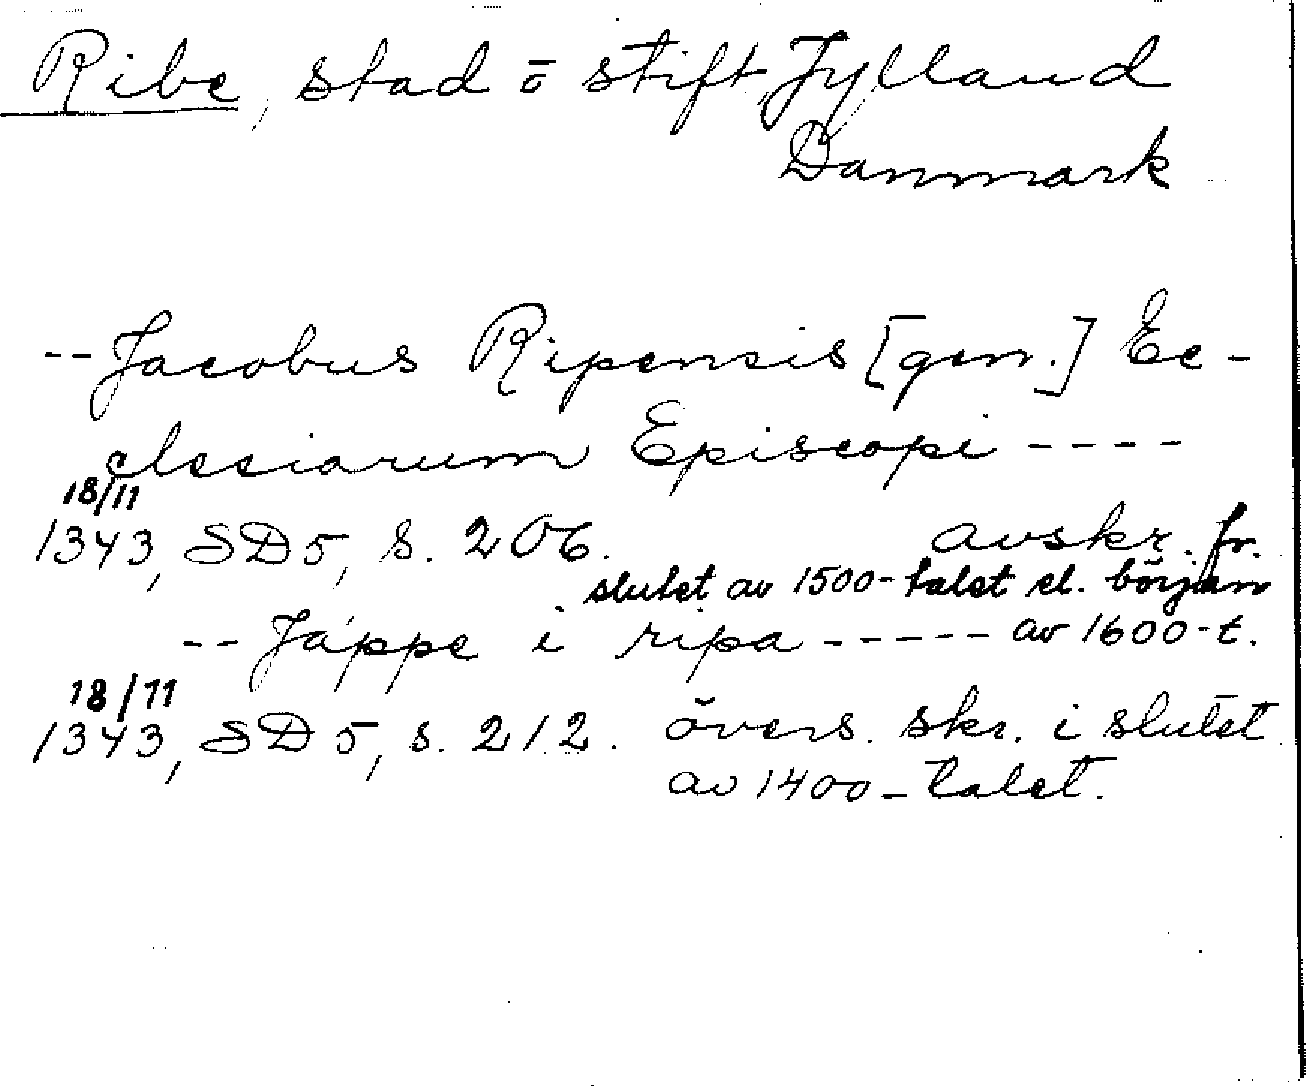 Ribe, stad o stift, Jylland
Danmark
-- Jacobus Ripensis [gen.] Ec-
clesiarum Episcopi ----
18/11
1343, SD 5, s. 206. avskr. fr.
slutet av 1500-talet el. början
-- Jáppe i ripa ----- av 1600-t.
18/11
1343, SD 5, s. 212. övers. skr. i slutet
av 1400-talet.